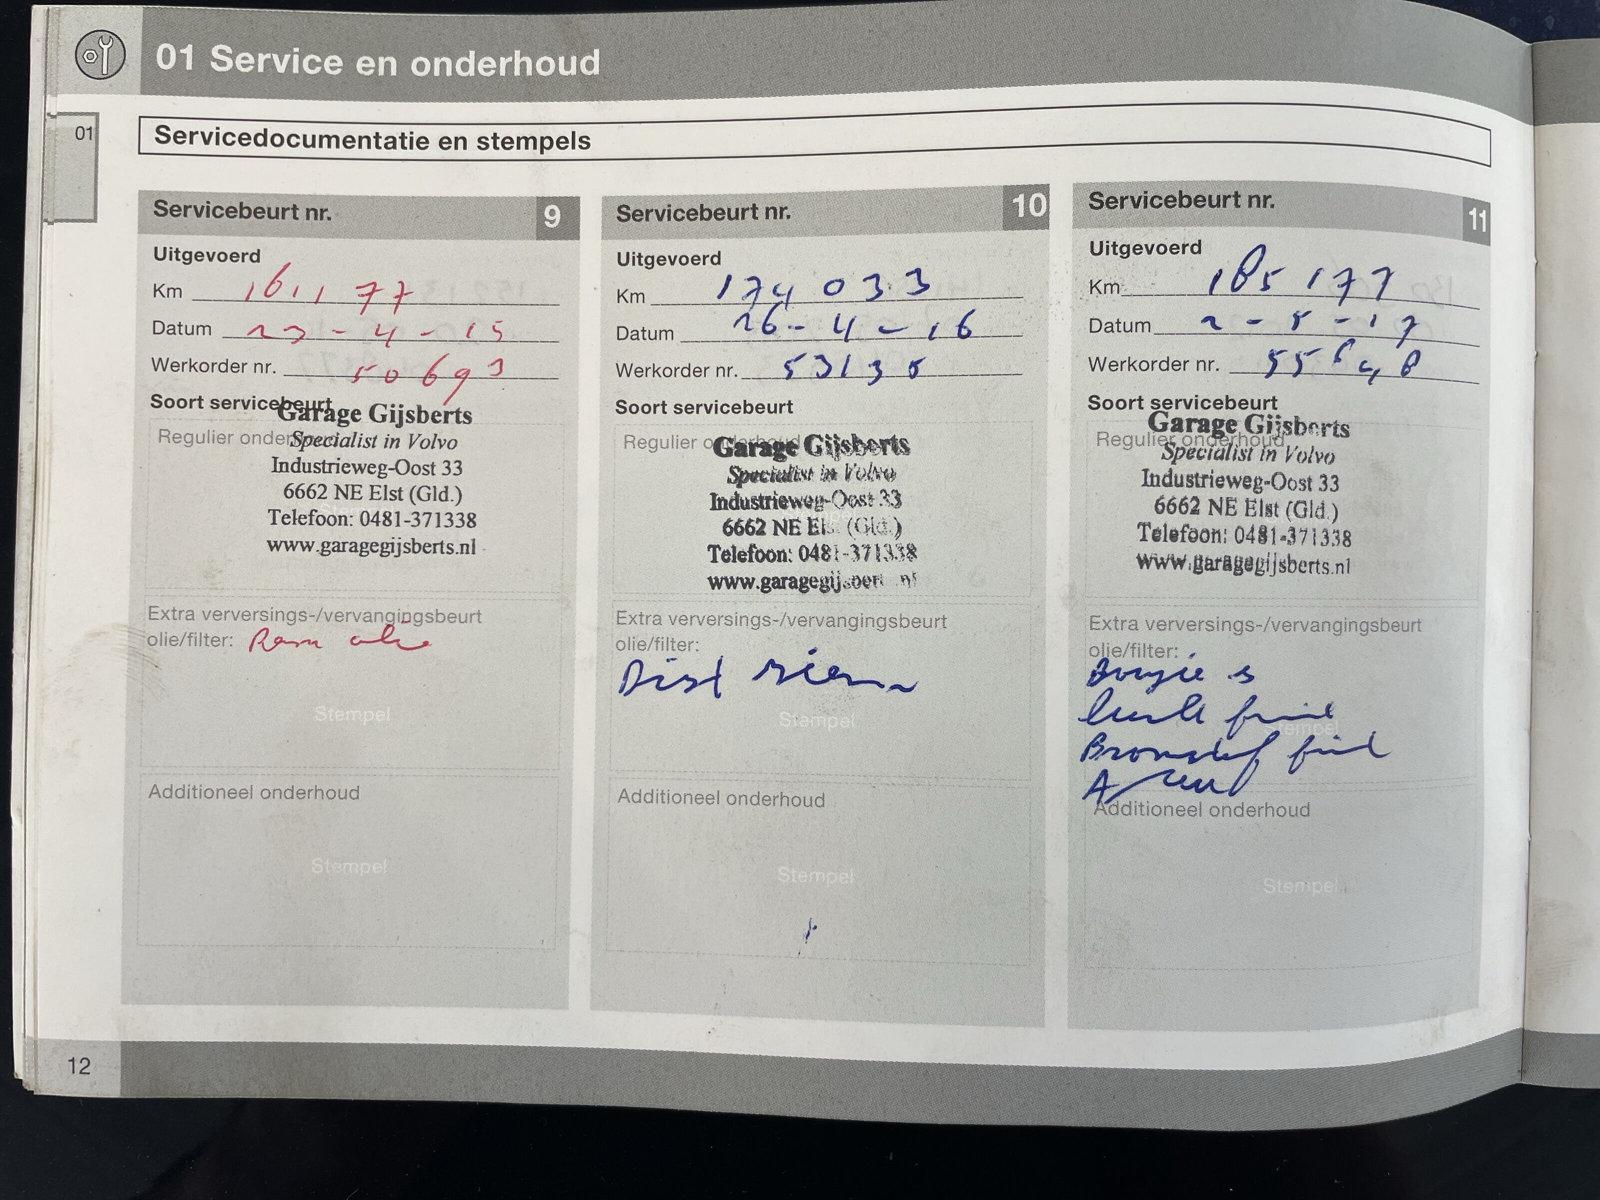 01 Service en onderhoud
01
Servicedocumentatie en stempels
Servicebeurt nr. 9
Uitgevoerd
Km 161177
Datum 23-4-15
Werkorder nr. 50693
Soort servicebeurt
Regulier onderhoud
Garage Gijsberts
Specialist in Volvo
Industrieweg-Oost 33
6662 NE Elst (Gld.)
Telefoon: 0481-371338
www.garagegijsberts.nl
Extra verversings-/vervangingsbeurt
olie/filter: Rem olie
Stempel
Additioneel onderhoud
Stempel
Servicebeurt nr. 10
Uitgevoerd
Km 174033
Datum 26-4-16
Werkorder nr. 53135
Soort servicebeurt
Regulier onderhoud
Garage Gijsberts
Specialist in Volvo
Industrieweg-Oost 33
6662 NE Elst (Gld.)
Telefoon: 0481-371338
www.garagegijsberts.nl
Extra verversings-/vervangingsbeurt
olie/filter:
Dist riem
Stempel
Additioneel onderhoud
Stempel
Servicebeurt nr. 11
Uitgevoerd
Km 185177
Datum 2-5-17
Werkorder nr.
Soort servicebeurt
Regulier onderhoud
Garage Gijsberts
Specialist in Volvo
Industrieweg-Oost 33
6662 NE Elst (Gld.)
Telefoon: 0481-371338
www.garagegijsberts.nl
Extra verversings-/vervangingsbeurt
olie/filter:
Bougie s
Stempel
Additioneel onderhoud
Stempel
12